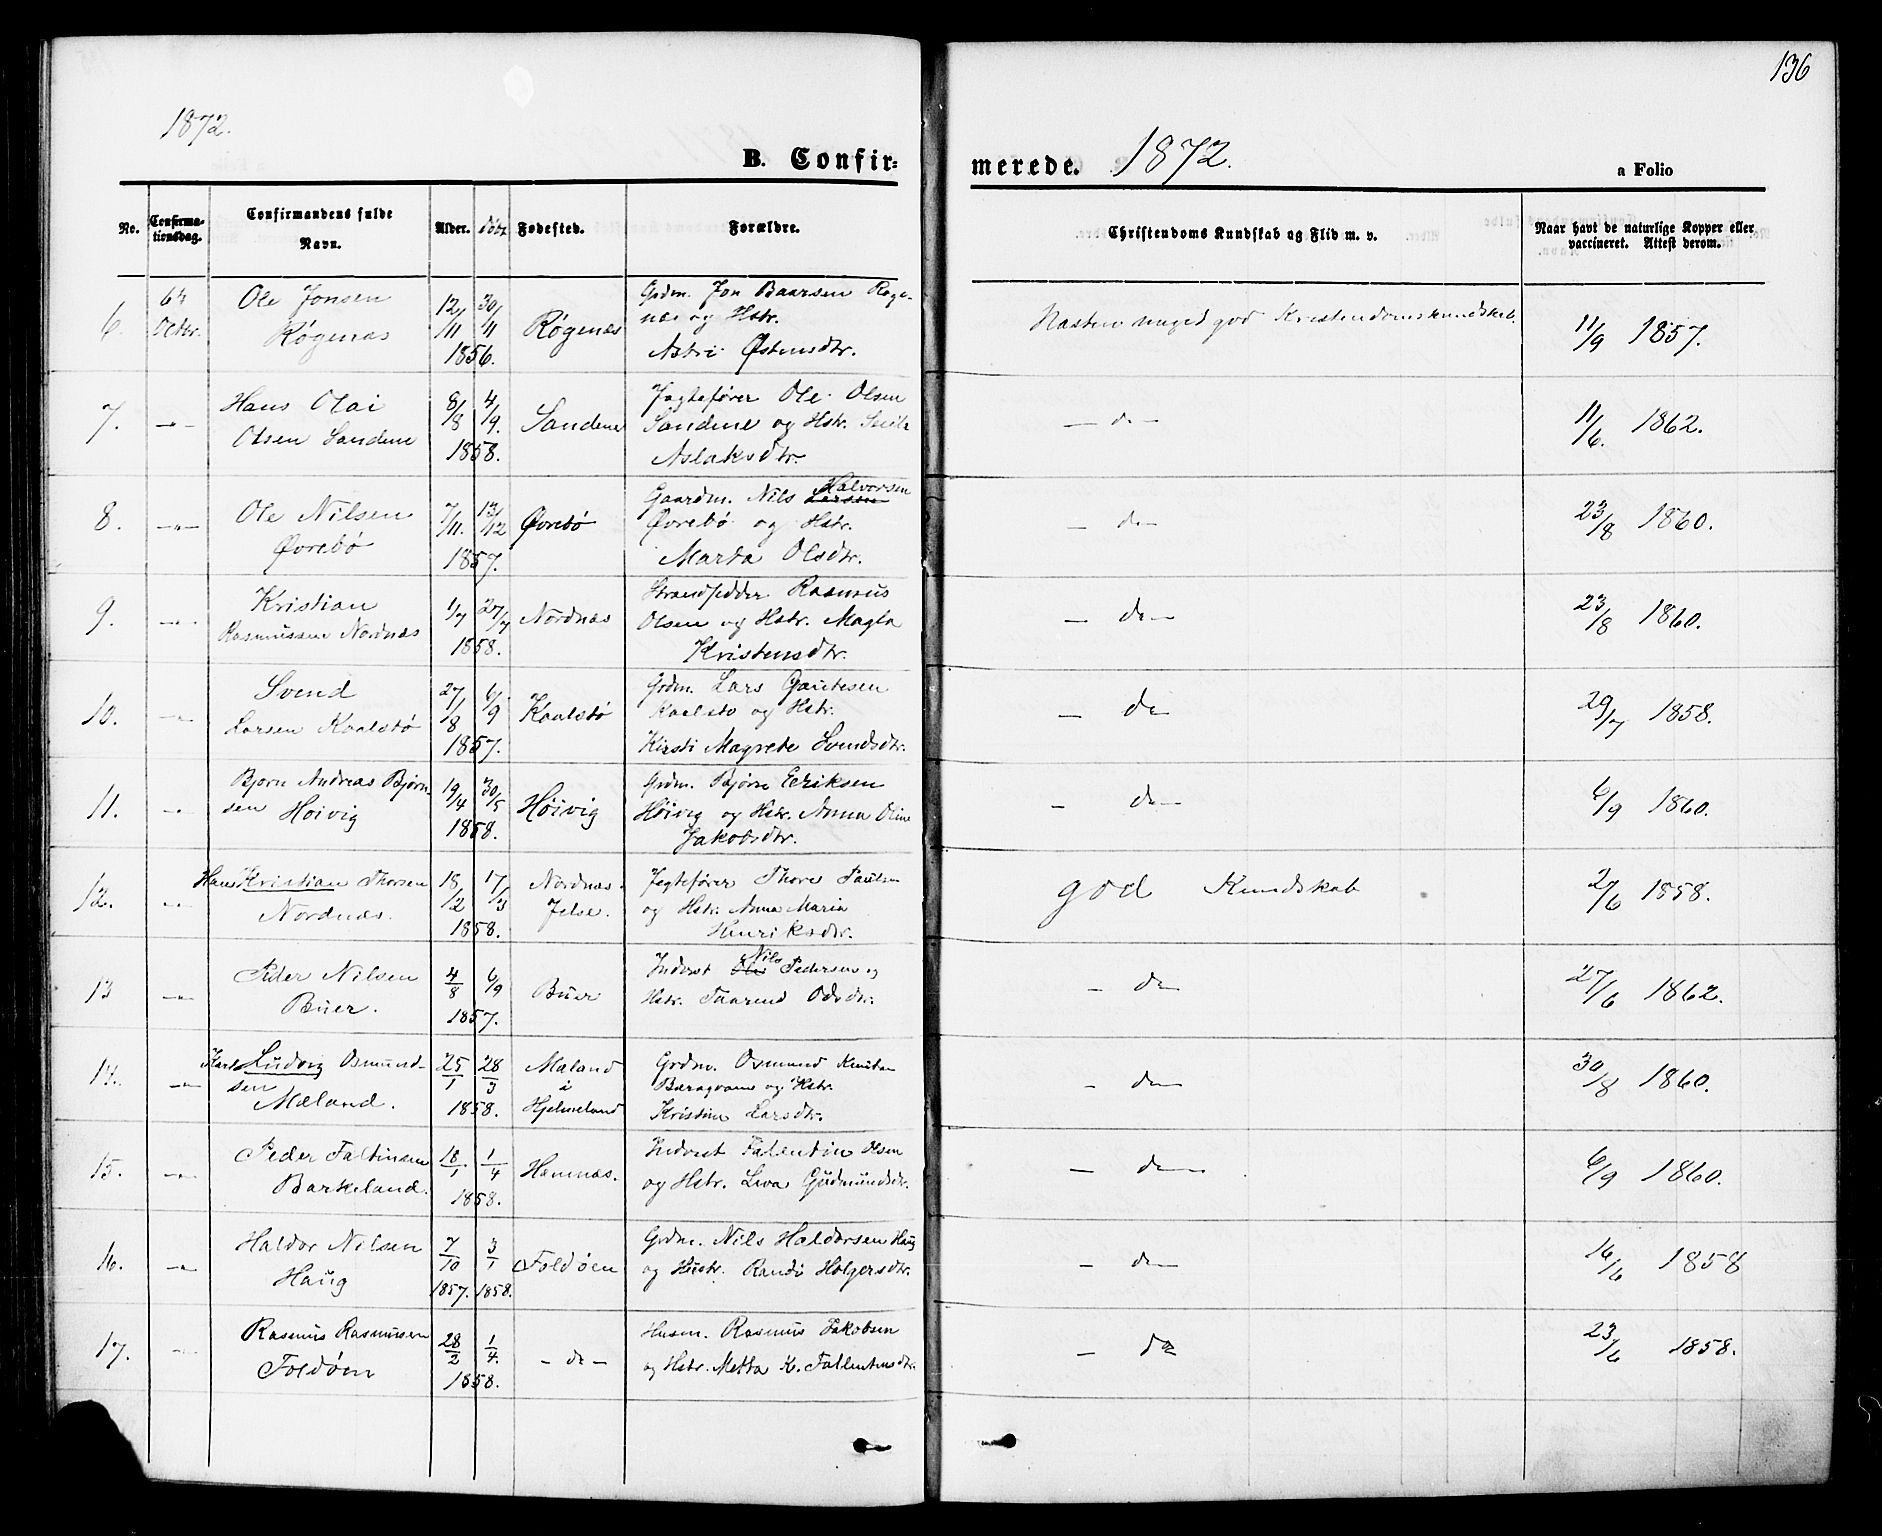 136
1872.
B. Confir=
merede. 1872.
a Folio
No.
Confirma-
tionsdag.
Confirmandens fulde
Navn.
Alder.
Døbt
Fødested.
Forældre.
Christendoms Kundskab og Flid m. v.
Naar havt de naturlige Kopper eller
vaccineret. Attest derom.
6. 6te Oktbr. Ole Jonsen
Røgenæs
12/11 30/11
1856.
Røgenæs
Grdm. Jon Baarsen Røge-
næs og Hstr.
Astri Østensdtr.
Næsten meget god Kristendomskundskab.
11/9 1857.
7. -"- Hans Olai
Olsen Sandene
8/8 4/9.
1858.
Sandene
Jagtefører Ole Olsen
Sandene og Hstr.
Aslaksdtr.
- do -
11/6. 1862.
8. -"- Ole Nilsen
Øvrebø
7/11. 13/12
1857.
Øvrebø
Gaardm. Nils Larsen Halvorsen
Øvrebø og Hstr.
Marta Olsdtr.
- do -
23/8 1860.
9. -"- Kristian
Rasmussen Nordnæs
1/7 27/7
1858.
Nordnæs
Strandsidder Rasmus
Olsen og Hstr. Magla
Kristensdtr.
- do -
23/8 1860.
10. -"- Svend
Larsen Kaalstø
27/8 6/9
1857.
Kaalstø
Grdm. Lars Gautesen
Kaalstø og Hstr.
Kirsti Magrete Svendsdtr.
- do
29/7 1858.
11. -"- Bjørn Andreas Bjørn-
sen Høivig
19/4 30/5
1858.
Høivig
Grdm. Bjørn Eeriksen
Høivig og Hstr. Anna Oline
Jakobsdtr.
- do -
6/9 1860.
12. -"- Hans Kristian Thorsen
Nordnæs.
18/2 17/3
1858.
Nordnæs.
Jelse.
Jegtefører Thore Paulsen
og Hstr. Anna Maria
Henriksdtr.
god Kundskab
27/6 1858.
13 -"- Peder Nilsen
Buer.
4/8 6/9
1857.
Buer
Inderst Ole Nils Pedersen og
Hstr. Taarend
- do -
27/6 1862.
14. -"- Karl Ludvig Osmund-
sen
Mæland.
25/1 28/3
1858.
Mæland
i
Hjelmeland
Grdm. Osmund Knutsen
og Hstr.
Kristine Larsdtr.
- do -
30/8 1860.
15. -"- Peder Faltinsen
Barkeland.
18/1 1/4
1858.
Hamnæs.
Inderst Falentin Olsen
og Hstr. Liva Gudmundsdtr.
- do -
6/9 1860.
16. -"- Haldor Nilsen
Haug
7/10 3/1
1857. 1858.
Foldøen
Grdm. Nils Haldorsen Haug
og Hustr. Randi Holgersdtr.
- do -
16/6 1858
17. -"- Rasmus Rasmusen
Foldøen
28/2 1/4.
1858.
- do -
Husm. Rasmus Jakobsen
og Hstr. Metta K. Fallentinsdtr.
- do
23/6 1858.